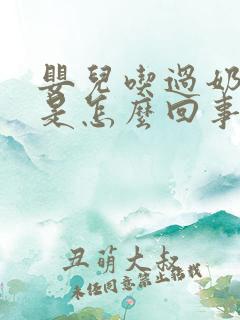 嬰兒喫過奶
是怎麼回事
丑萌大叔
未经同意禁止转载